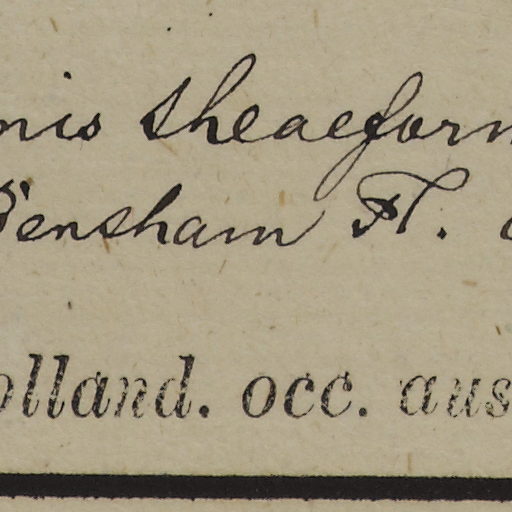 nis theaeform
Bensham Fl.
olland. occ. aus